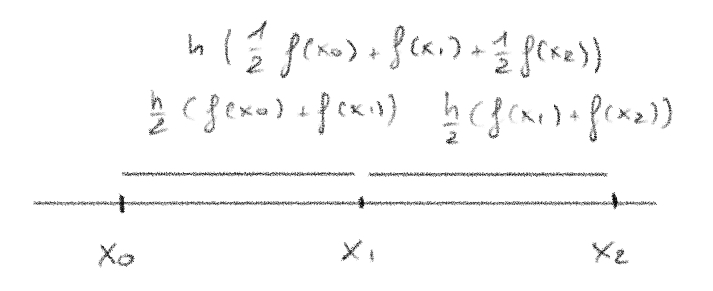 h ( 1/2 f(x₀) + f(x₁) + 1/2 f(x₂))
h/2 (f(x₀) + f(x₁)) h/2 (f(x₁) + f(x₂))
x₀ x₁ x₂